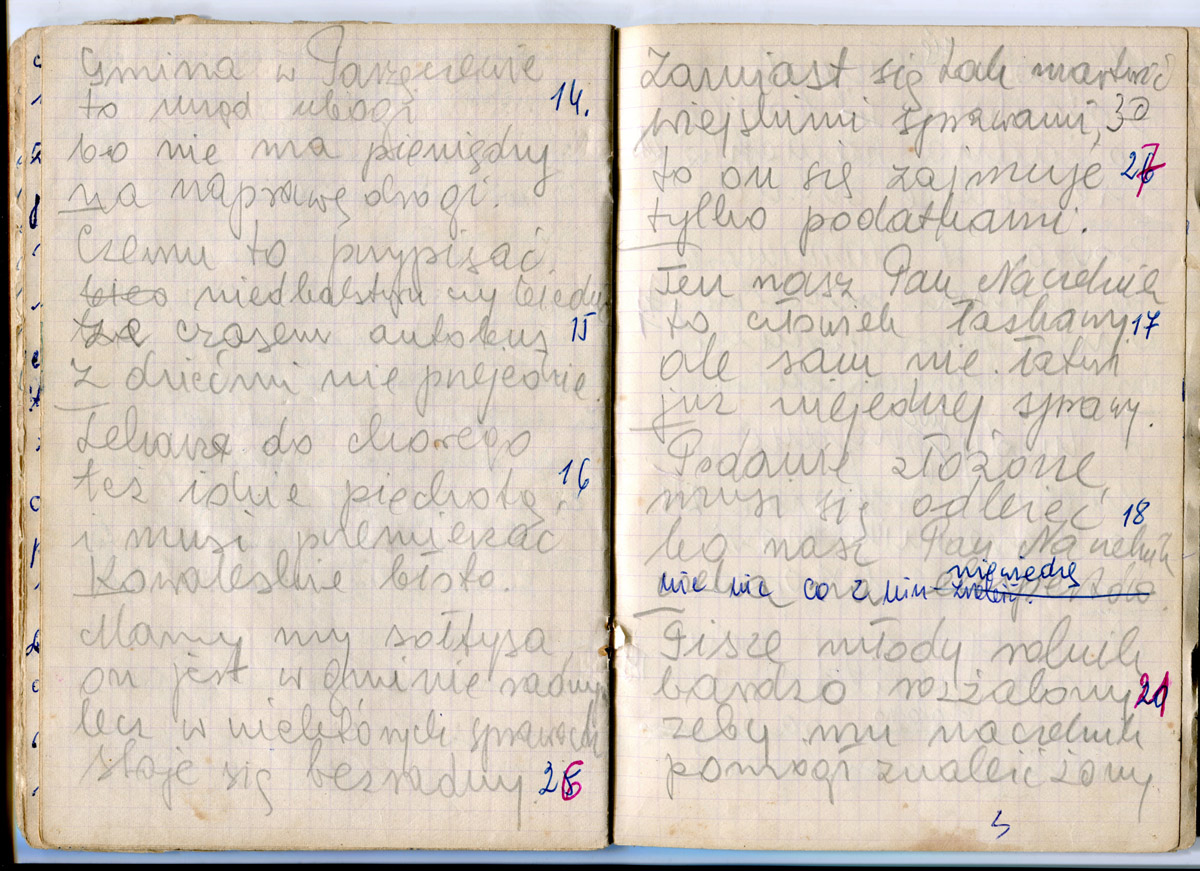 Gmina w Parzęczewie
to urząd ubogi 14.
bo nie ma pieniędzy
na naprawę drogi.
Czemu to przypisać,
niedbalstwu czy biedzie
że czasem autobus 15
z dziećmi nie przejedzie.
Lekarz do chorego
też idzie piechotą, 16
i musi przemierzać
Kowaleskie błoto.
Mamy my sołtysa
on jest w gminie radny
lecz w niektórych sprawach
staje się bezradny 26
Zamiast się tak martwić
wiejskimi sprawami, 30
to on się zajmuje 27
tylko podatkami.
Ten nasz Pan Naczelnik
to człowiek łaskawy 17
ale sam nie łatwi
już niejednej sprawy.
Podanie złożone,
musi się odleżeć 18
bo nasz Pan Naczelnik
nie wie co z nim niewiedzę
Pisze młody rolnik
bardzo rozżalony 21
żeby mu naczelnik
pomógł znaleźć żony.